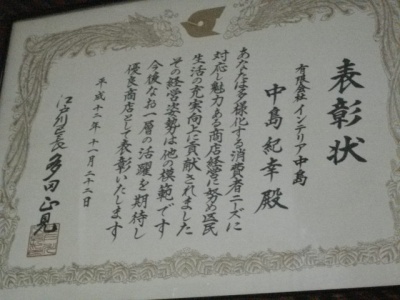 表彰状
有限会社インテリア中島
中島紀幸殿
あなたは多様化する消費者ニーズに
対応し魅力ある商店経営に努め区民
生活の充実向上に貢献されました
その経営姿勢は他の模範です
今後なお一層の活躍を期待し
優良商店として表彰いたします
平成十二年十一月二十二日
江戸川区長多田正見